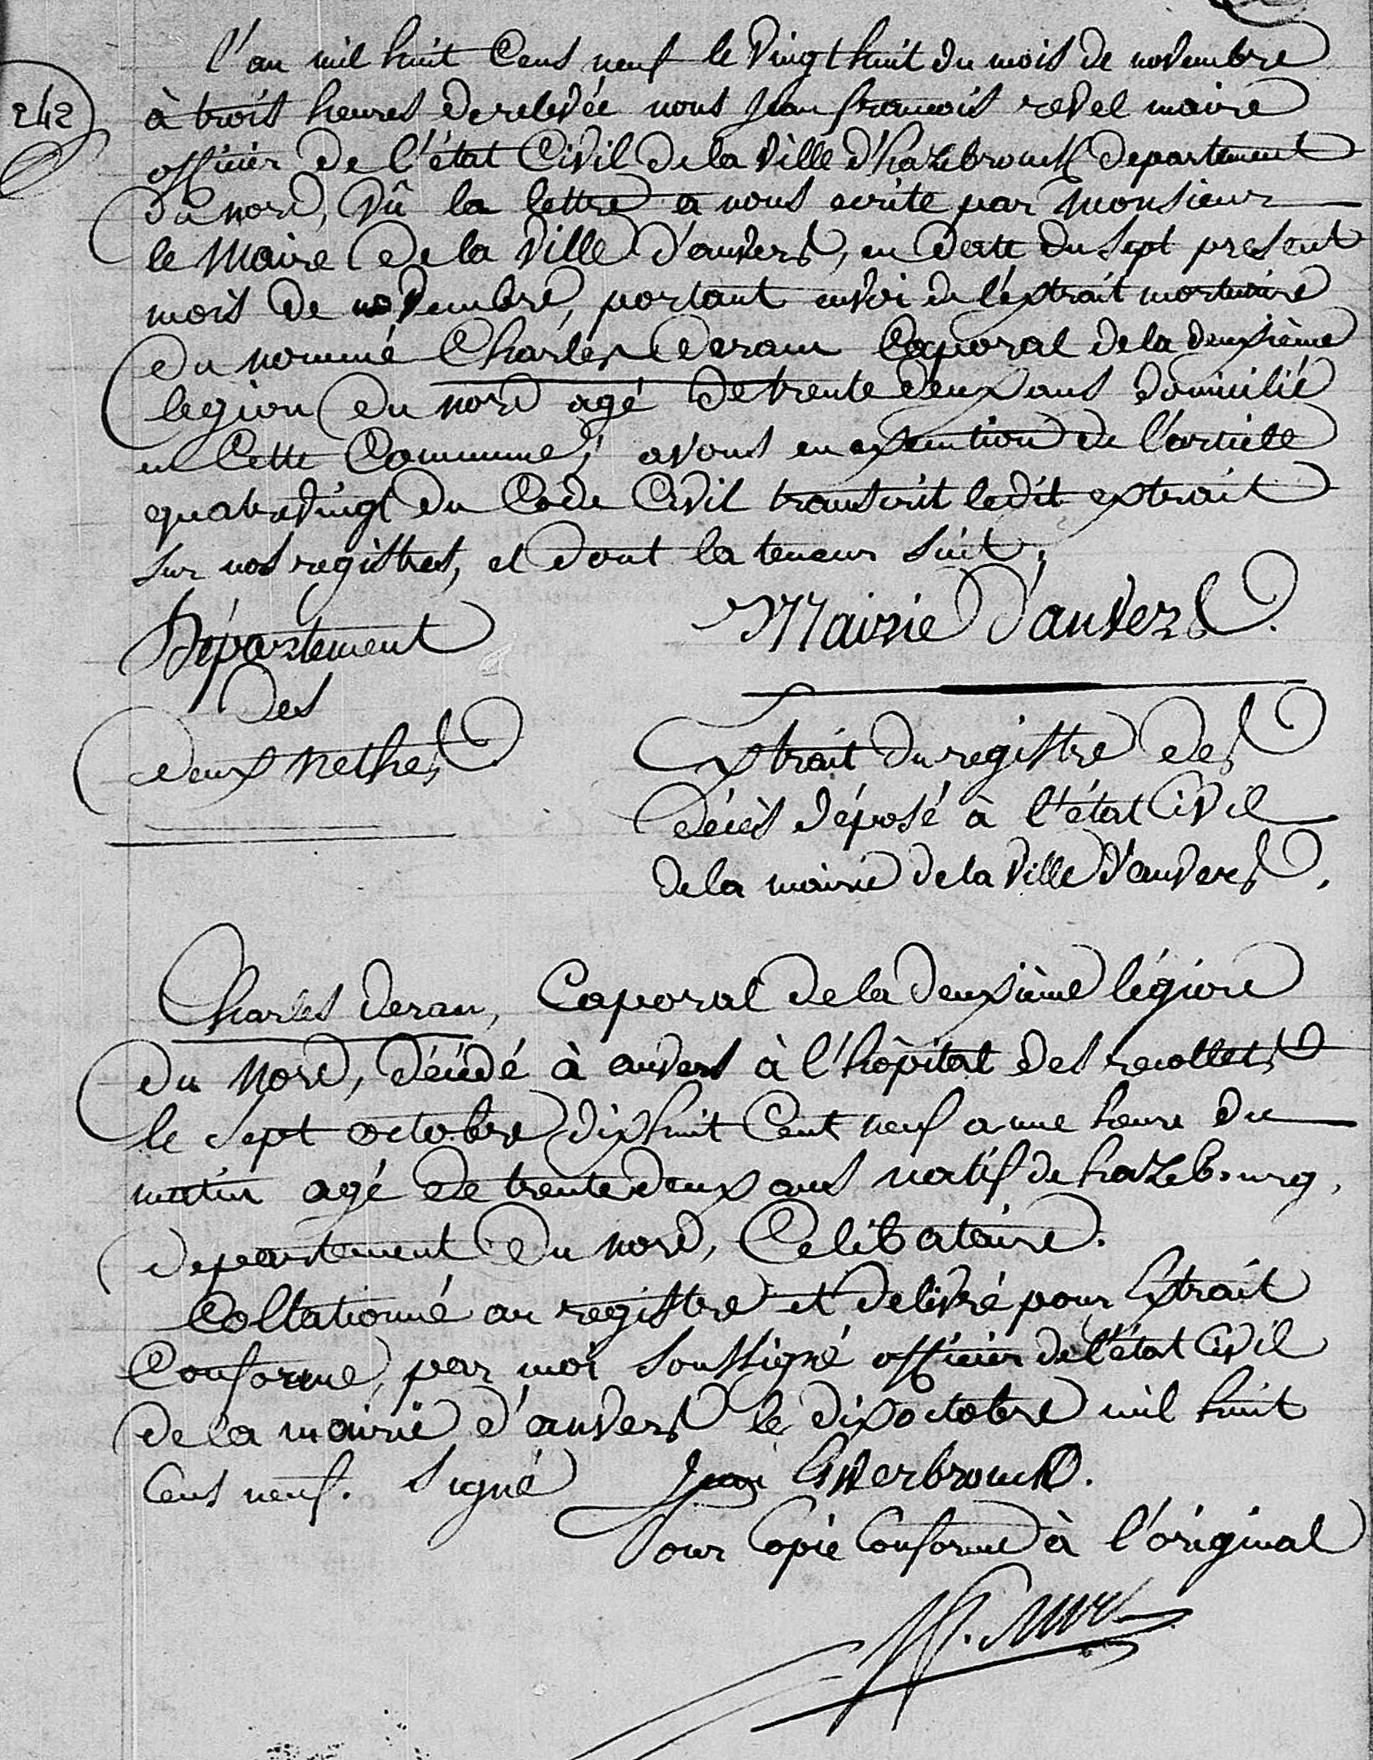 l'an mil huit Cens neuf le Vingt huit du mois de novembre
242
à trois heures de relevée nous Jean francois revel maire
officier de l'état Civil de la Ville d'hazebrouck departement
du nord, Vû la lettre a nous ecrite par Monsieur
le Maire de la Ville d'anvers, en date du sept present
mois de novembre, portant envoi de l'extrait mortuaire
du nommé Charles deram Caporal de la deuxième
legion du nord agé de trente deux ans domicilié
en Cette Commune, avons en execution de l'article
quatrevingt du Code Civil transcrit ledit extrait
sur nos registres, et dont la teneur suit;
Département
des
deux nethes
Mairie d'anvers.
Extrait du registre des
décès déposé à l'état Civil
de la mairie de la Ville d'anvers,
Charles deran, Caporal de la deuxième légion
du Nord, décédé à anvers à l'hôpital des recollets
le sept octobre dix huit Cent neuf a une heure du
matin agé de trente deux ans natif de hazebourg,
departement du nord, Celibataire.
Collationné au registre et delivré pour Extrait
Conforme, par moi soussigné officier de l'état Civil
de la mairie d'anvers le dix octobre mil huit
Cens neuf. signé
Pour Copie Conforme à l'original